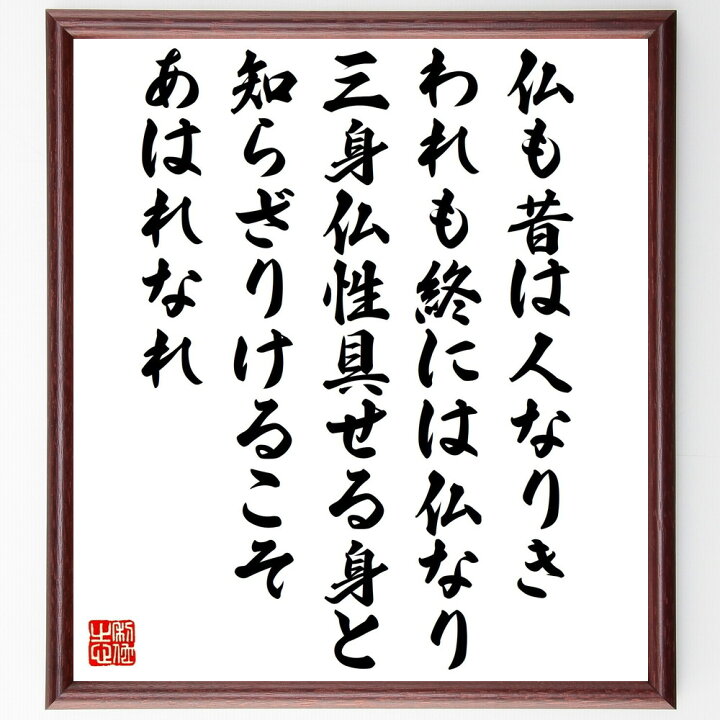 仏も昔は人なりき
われも終には仏なり
三身仏性具せる身と
知らざりけるこそ
あはれなれ